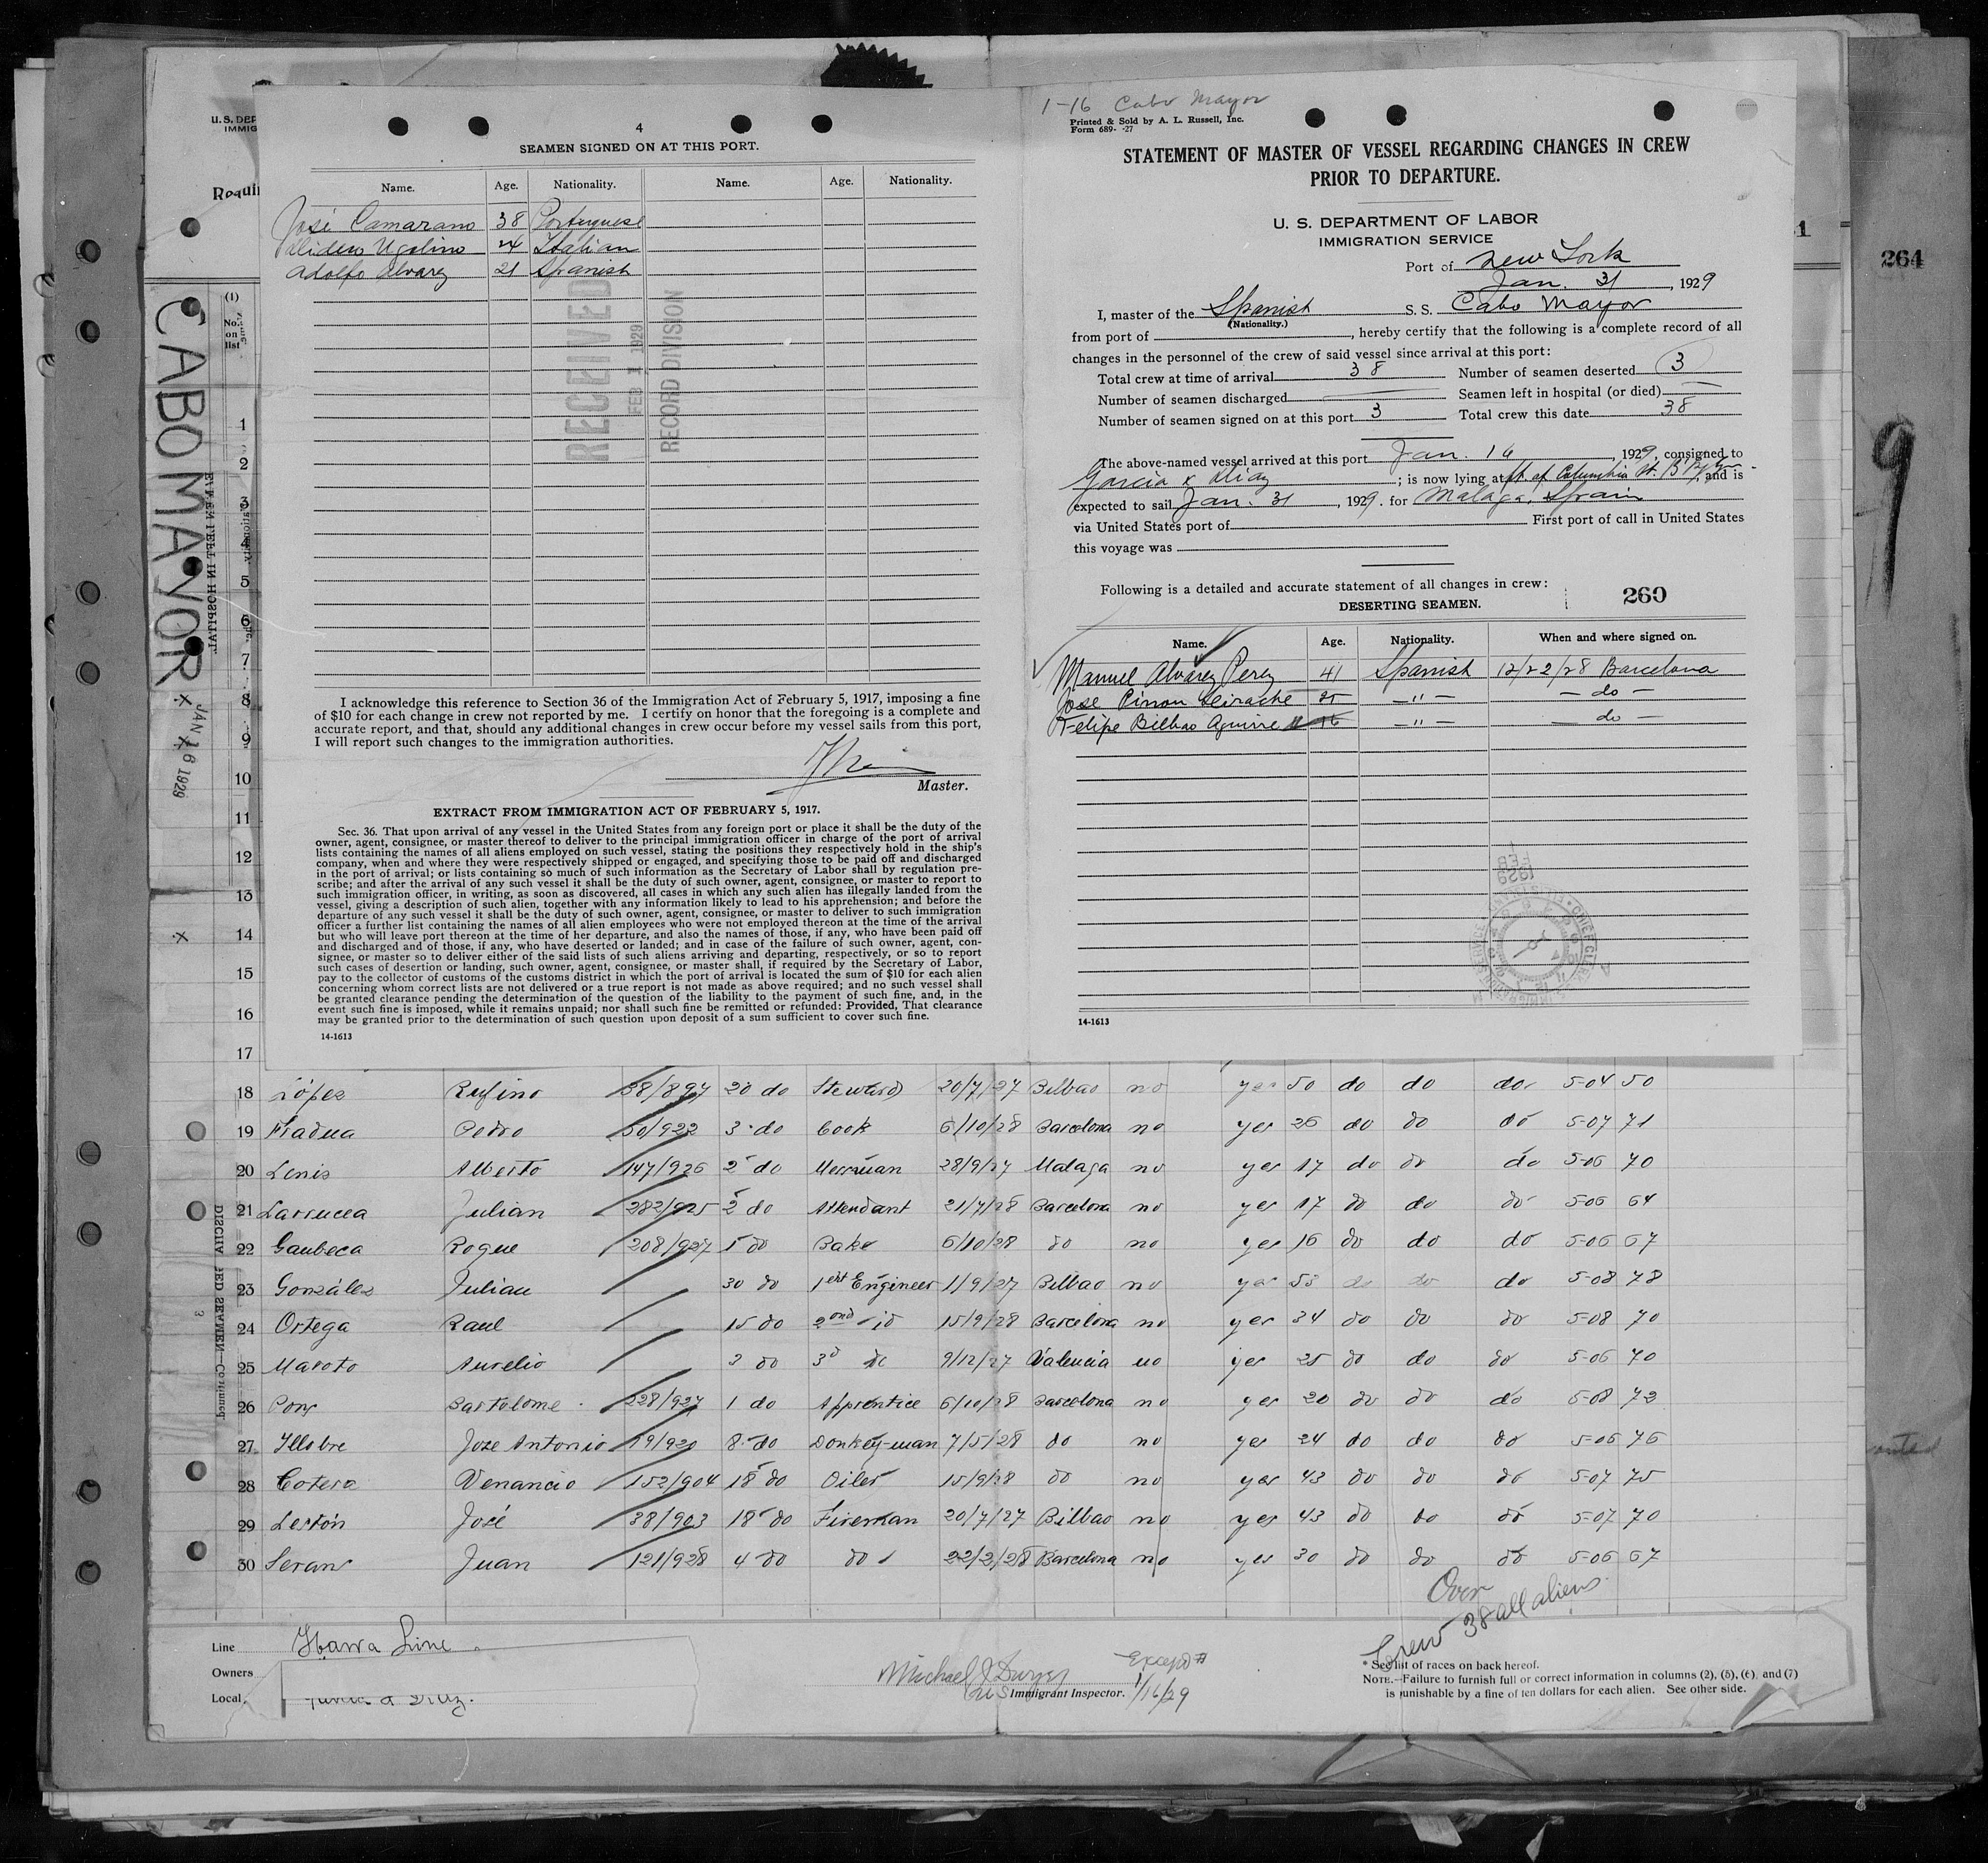 4
SEAMEN SIGNED ON AT THIS PORT.
Name. Age. Nationality. Name. Age. Nationality.
José Camarano 38 Portuguese
Ugolino 24 Italian
Adolfo Alvarez 21 Spanish
RECEIVED
FEB 1 1929
RECORD DIVISION
I acknowledge this reference to Section 36 of the Immigration Act of February 5, 1917, imposing a fine
of $10 for each change in crew not reported by me. I certify on honor that the foregoing is a complete and
accurate report, and that, should any additional changes in crew occur before my vessel sails from this port,
I will report such changes to the immigration authorities.
Master.
EXTRACT FROM IMMIGRATION ACT OF FEBRUARY 5, 1917.
Sec. 36. That upon arrival of any vessel in the United States from any foreign port or place it shall be the duty of the
owner, agent, consignee, or master thereof to deliver to the principal immigration officer in charge of the port of arrival
lists containing the names of all aliens employed on such vessel, stating the positions they respectively hold in the ship's
company, when and where they were respectively shipped or engaged, and specifying those to be paid off and discharged
in the port of arrival; or lists containing so much of such information as the Secretary of Labor shall by regulation pre-
scribe; and after the arrival of any such vessel it shall be the duty of such owner, agent, consignee, or master to report to
such immigration officer, in writing, as soon as discovered, all cases in which any such alien has illegally landed from the
vessel, giving a description of such alien, together with any information likely to lead to his apprehension; and before the
departure of any such vessel it shall be the duty of such owner, agent, consignee, or master to deliver to such immigration
officer a further list containing the names of all alien employees who were not employed thereon at the time of the arrival
but who will leave port thereon at the time of her departure, and also the names of those, if any, who have been paid off
and discharged and of those, if any, who have deserted or landed; and in case of the failure of such owner, agent, con-
signee, or master so to deliver either of the said lists of such aliens arriving and departing, respectively, or so to report
such cases of desertion or landing, such owner, agent, consignee, or master shall, if required by the Secretary of Labor,
pay to the collector of customs of the customs district in which the port of arrival is located the sum of $10 for each alien
concerning whom correct lists are not delivered or a true report is not made as above required; and no such vessel shall
be granted clearance pending the determination of the question of the liability to the payment of such fine, and, in the
event such fine is imposed, while it remains unpaid; nor shall such fine be remitted or refunded: Provided, That clearance
may be granted prior to the determination of such question upon deposit of a sum sufficient to cover such fine.
14-1613
1-16 Cabo Mayor
Printed & Sold by A. L. Russell, Inc.
Form 689- -27
STATEMENT OF MASTER OF VESSEL REGARDING CHANGES IN CREW
PRIOR TO DEPARTURE.
U. S. DEPARTMENT OF LABOR
IMMIGRATION SERVICE
Port of New York
Jan. 31, 1929
I, master of the Spanish S. S. Cabo Mayor
(Nationality.)
from port of , hereby certify that the following is a complete record of all
changes in the personnel of the crew of said vessel since arrival at this port:
Total crew at time of arrival 38 Number of seamen deserted 3
Number of seamen discharged Seamen left in hospital (or died)
Number of seamen signed on at this port 3 Total crew this date 38
The above-named vessel arrived at this port Jan. 16, 1929, consigned to
Garcia & Diaz; is now lying at ft. of Columbia St. Bklyn, and is
expected to sail Jan. 31, 1929. for Malaga, Spain
via United States port of First port of call in United States
this voyage was
Following is a detailed and accurate statement of all changes in crew:
260
DESERTING SEAMEN.
Name. Age. Nationality. When and where signed on.
Manuel Alvarez Perez 41 Spanish 12/22/28 Barcelona
Jose Pinon 25 — " — — do —
Felipe Bilbao Aguirre 16 — " — — do —
FEB 1 1929
14-1613
264
9
U. S. DEP
IMMIG
Requi
(1)
No.
on
list
CABO MAYOR
JAN 16 1929
1
2
3
4
5
6
7
8
9
10
11
12
13
14
15
16
17
18 López Rufino 38/897 20 do Steward 20/7/27 Bilbao no yes 50 do do do 5-04 50
19 Fradua Pedro 50/922 3 do Cook 6/10/28 Barcelona no yes 26 do do do 5-07 71
20 Lenis Alberto 147/926 2 do Messman 28/9/27 Malaga no yes 17 do do do 5-06 70
21 Larrucea Julian 282/925 2 do Attendant 21/7/28 Barcelona no yes 17 do do do 5-06 64
22 Gaubeca Roque 208/927 1 do Baker 6/10/28 do no yes 16 do do do 5-06 67
23 González Julian 30 do 1st Engineer 1/9/27 Bilbao no yes 53 do do do 5-08 78
24 Ortega Raul 15 do 2nd id 15/9/28 Barcelona no yes 34 do do do 5-08 70
25 Maroto Aurelio 3 do 3d do 9/12/27 Valencia no yes 25 do do do 5-06 70
26 Pons Bartolome 228/927 1 do Apprentice 6/10/28 Barcelona no yes 20 do do do 5-08 72
27 Illobre Jose Antonio 19/920 8 do Donkey-man 7/5/28 do no yes 24 do do do 5-06 76
28 Cotero Venancio 152/904 18 do Oiler 15/9/28 do no yes 43 do do do 5-07 75
29 Lestón José 38/903 18 do Fireman 20/7/27 Bilbao no yes 43 do do do 5-07 70
30 Serans Juan 121/928 4 do do 22/2/28 Barcelona no yes 30 do do do 5-06 67
Over
Crew 38 all aliens
Line Ybarra Line
Owners
Local
Michael J Dwyer Except #
US Immigrant Inspector. 1/16/29
* See list of races on back hereof.
NOTE.—Failure to furnish full or correct information in columns (2), (5), (6), and (7)
is punishable by a fine of ten dollars for each alien. See other side.